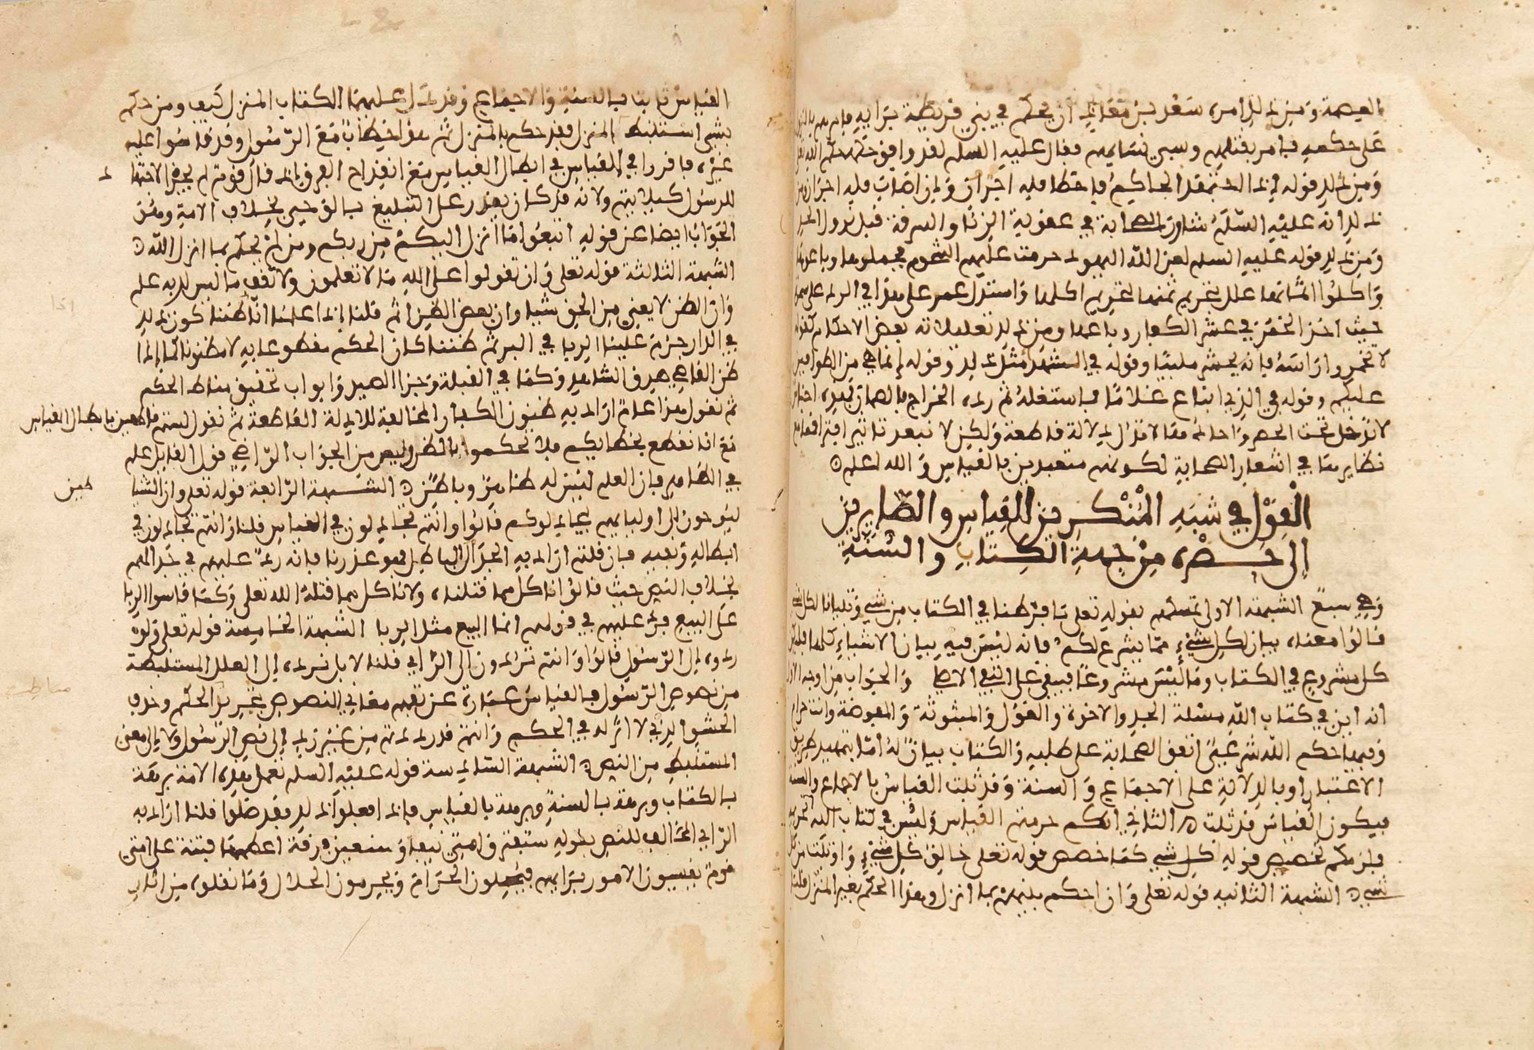 العصمة ومن ذلك أمره سعد بن معاذ أن يحكم في بني قريظة برأيه فأمرهم بالنزول
على حكمه فأمر بقتلهم وسبي نسايهم فقال عليه السلم لقد وافق حكمه حكم الله
ومن ذلك قوله إذا اجتهد الحاكم فأخطأ فله أجر وإن أصاب فله أجران ومن
ذلك أنه عليه السلم شاور الصحابة في عقوبة الزنا والسرقة قبل نزول الحد
ومن ذلك قوله عليه السلم لعن الله اليهود حرمت عليهم الشحوم فجملوها وباعوها
وأكلوا أثمانها علل تحريم ثمنها بتحريم أكلها واستدل عمر على هذا في الرد على سمرة
حيث أخذ الخمر في عشر الكفار وباعها ومن ذلك تعليلاته بعض الأحكام كقوله
لا تخمروا رأسه فإنه يحشر ملبيا وقوله في الشهداء مثل ذلك وقوله إنها من الطوافين
عليكم وقوله في الذي ابتاع غلاما فاستغله ثم رده الخراج بالضمان فهذه أجناس
لا تدخل تحت الحصر وآحادها لا تدل دلالة قاطعة ولكن لا يبعد تأثير اقترانها مع
نظايرها في اشعار الصحابة لكونهم متعبدين بالقياس والله أعلم
القول في شبه المنكرين للقياس والصايرين
إلى حظره من جهة الكتاب والسنة
وهي سبع الشبهة الأولى تمسكهم بقوله تعلى ما فرطنا في الكتاب من شي وتبيانا لكل شي
قالوا معناه بيان لكل شيء مما شرع لكم فإنه ليس فيه بيان الأشياء كلها فليكن
كل مشروع في الكتاب وما ليس مشروعا فيبقى على النفي الأصلي والجواب من أوجه الأول
أنه أين في كتاب الله مسئلة الجد والاخوة والعول والمبتوتة والمفوضة وأنت حرام
وفيها حكم الله شرعي اتفق الصحابة على طلبه والكتاب بيان له إما بتمهيد طريق
الاعتبار أو بالدلالة على الاجماع والسنة وقد ثبت القياس بالاجماع والسنة
فيكون القياس قد ثبت الثاني أنكم حرمتم القياس وليس في كتاب الله تحريمه
فلزمكم تخصيص قوله لكل شي كما خصص قوله تعلى خالق كل شيء وأوتيت من كل
شي الشبهة الثانية قوله تعلى وأن احكم بينهم بما أنزل وهذا الحكم بغير المنزل قلنا
القياس ثابت بالسنة والاجماع وقد دل عليهما الكتاب المنزل كيف ومن حكم
بشي استنبط من المنزل فقد حكم بالمنزل ثم هو خطاب مع الرسول وقد قاسوا عليه
غيره فأقروا في القياس في ابطال القياس مع انقداح الفرق إذ قال قوم لم يجز الاجتهاد
للرسول كيلا يتهم ولأنه قد كان يقدر على التبليغ بالوحي بخلاف الأمة وهو
الجواب أيضا عن قوله اتبعوا ما أنزل اليكم من ربكم ومن لم يحكم بما أنزل الله
الشبهة الثالثة قوله تعلى وأن تقولوا على الله ما لا تعلمون ولا تقف ما ليس لك به علم
وإن الظن لا يغني من الحق شيا وإن بعض الظن إثم قلنا إذا علمنا أنا ظننا كون زيد
في الدار حرم علينا الربا في البر ثم ظننا كان الحكم مقطوعا به لا مظنونا كما إذا
ظن القاضي صدق الشاهد وكما في القبلة وجزا الصيد وأبواب تحقيق مناط الحكم
ثم نقول هذا عام أراد به ظنون الكفار المخالفة للأدلة القاطعة ثم نقول ألستم قاطعين بإبطال القياس
مع أنا نقطع بخطايكم فلا تحكموا بالظن وليس من الجواب الراضي قول القايل علم
في الظاهر فإن العلم ليس له ظاهر وباطن الشبهة الرابعة قوله تعلى وإن الشيا
ظين
ليوحون إلى أوليايهم ليجادلوكم قالوا وأنتم تجادلون في القياس قلنا وأنتم تجادلون في
ابطاله ونفيه فإن قلتم أراد به الجدال الباطل فهو عذرنا فإنه رد عليهم في جدالهم
بخلاف النص حيث قالوا نأكل مما قتلنا ولا نأكل مما قتله الله تعلى وكما قاسوا الربا
على البيع فرد عليهم في قولهم إنما البيع مثل الربا الشبهة الخامسة قوله تعلى ولو
ردوه إلى الرسول قالوا وأنتم تردون إلى الرأي قلنا لا بل نرده إلى العلل المستنبطة
من نصوص الرسول فالقياس عبارة عن تفهم معاني النصوص بتجريد الحكم وحذف
الحشو الذي لا أثر له في الحكم وأنتم فقد رددتم من غير رد إلى نص الرسول ولا إلى معنى
المستنبط من النص الشبهة السادسة قوله عليه السلم تعمل هذه الأمة برهة
بالكتاب وبرهة بالسنة وبرهة بالقياس فإذا فعلوا ذلك فقد ضلوا قلنا أراد به
الرأي المخالف للنص بقوله ستفترق أمتي نيفا وسبعين فرقة أعظمها فتنة على أمتي
قوم يقيسون الأمور برأيهم فيحلون الحرام ويحرمون الحلال وما نقلوه من آثار